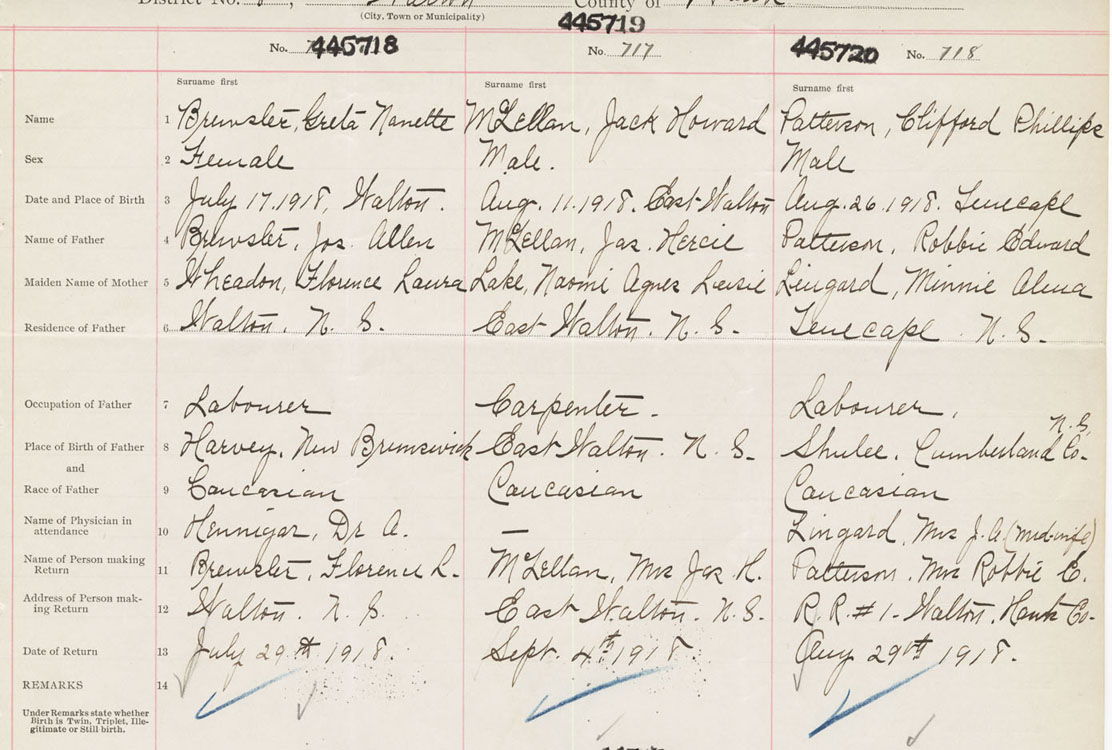 District No. County of
(City, Town or Municipality)
445718 445719 445720
No. No. 717 No. 718
Surname first Surname first Surname first
Name 1 Brewster, Greta Nanette McLellan, Jack Howard Patterson, Clifford Phillips
Sex 2 Female Male. Male
Date and Place of Birth 3 July 17. 1918, Walton. Aug. 11. 1918. East Walton Aug. 26. 1918. Tenecape
Name of Father 4 Brewster, Jos. Allen McLellan, Jas. Hercie Patterson, Robbie Edward
Maiden Name of Mother 5 Wheadon, Florence Laura Lake, Naomi Agnes Lusie Lingard, Minnie Alma
Residence of Father 6 Walton. N. S. East Walton. N. S. Tenecape N. S.
Occupation of Father 7 Labourer Carpenter. Labourer.
Place of Birth of Father 8 Harvey, New Brunswick East Walton. N. S. Shulee, Cumberland Co. N.S.
and
Race of Father 9 Caucasian Caucasian Caucasian
Name of Physician in attendance 10 Hennigar, Dr A. — Lingard, Mrs J. A. (mid-wife)
Name of Person making Return 11 Brewster, Florence L. McLellan, Mrs Jas H. Patterson, Mrs Robbie E.
Address of Person making Return 12 Walton. N. S. East Walton. N.S. R. R. #1. Walton. Hants Co.
Date of Return 13 July 29th 1918. Sept. 4th 1918. Aug 29th 1918.
REMARKS 14
Under Remarks state whether
Birth is Twin, Triplet, Ille-
gitimate or Still birth.